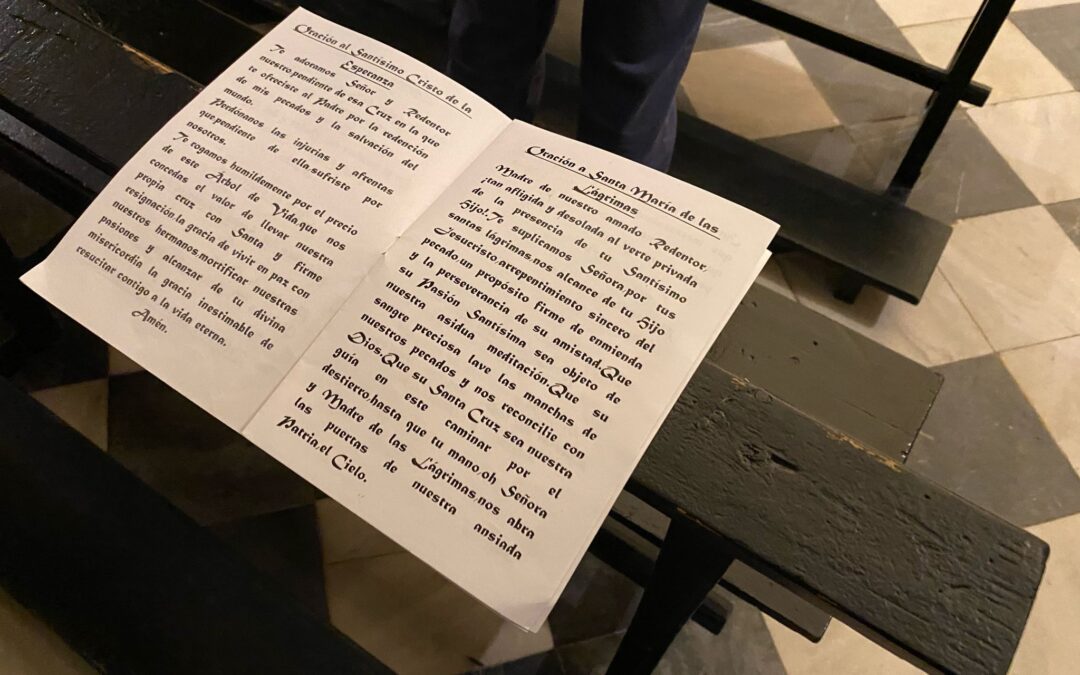 Oración al Santísimo Cristo de la
Esperanza
Te adoramos Señor y Redentor
nuestro,pendiente de esa Cruz en la que
te ofreciste al Padre por la redención
de mis pecados y la salvación del
mundo.
Perdónanos las injurias y afrentas
que,pendiente de ella,sufriste por
nosotros.
Te rogamos humildemente por el precio
de este Arbol de Vida,que nos
concedas el valor de llevar nuestra
propia cruz con Santa y firme
resignación,la gracia de vivir en paz con
nuestros hermanos,mortificar nuestras
pasiones y alcanzar de tu divina
misericordia la gracia inestimable de
resucitar contigo a la vida eterna.
Amén.
Oración a Santa María de las
Lágrimas
Madre de nuestro amado Redentor,
¡tan afligida y desolada al verte privada
de la presencia de tu Santísimo
Hijo!.Te suplicamos Señora,por tus
santas lágrimas,nos alcance de tu Hijo
Jesucristo,arrepentimiento sincero del
pecado,un propósito firme de enmienda
y la perseverancia de su amistad.Que
su Pasión Santísima sea objeto de
nuestra asidua meditación.Que su
sangre preciosa lave las manchas de
nuestros pecados y nos reconcilie con
Dios.Que su Santa Cruz sea nuestra
guía en este caminar por el
destierro,hasta que tu mano,oh Señora
y Madre de las Lágrimas,nos abra
las puertas de nuestra ansiada
Patria,el Cielo.